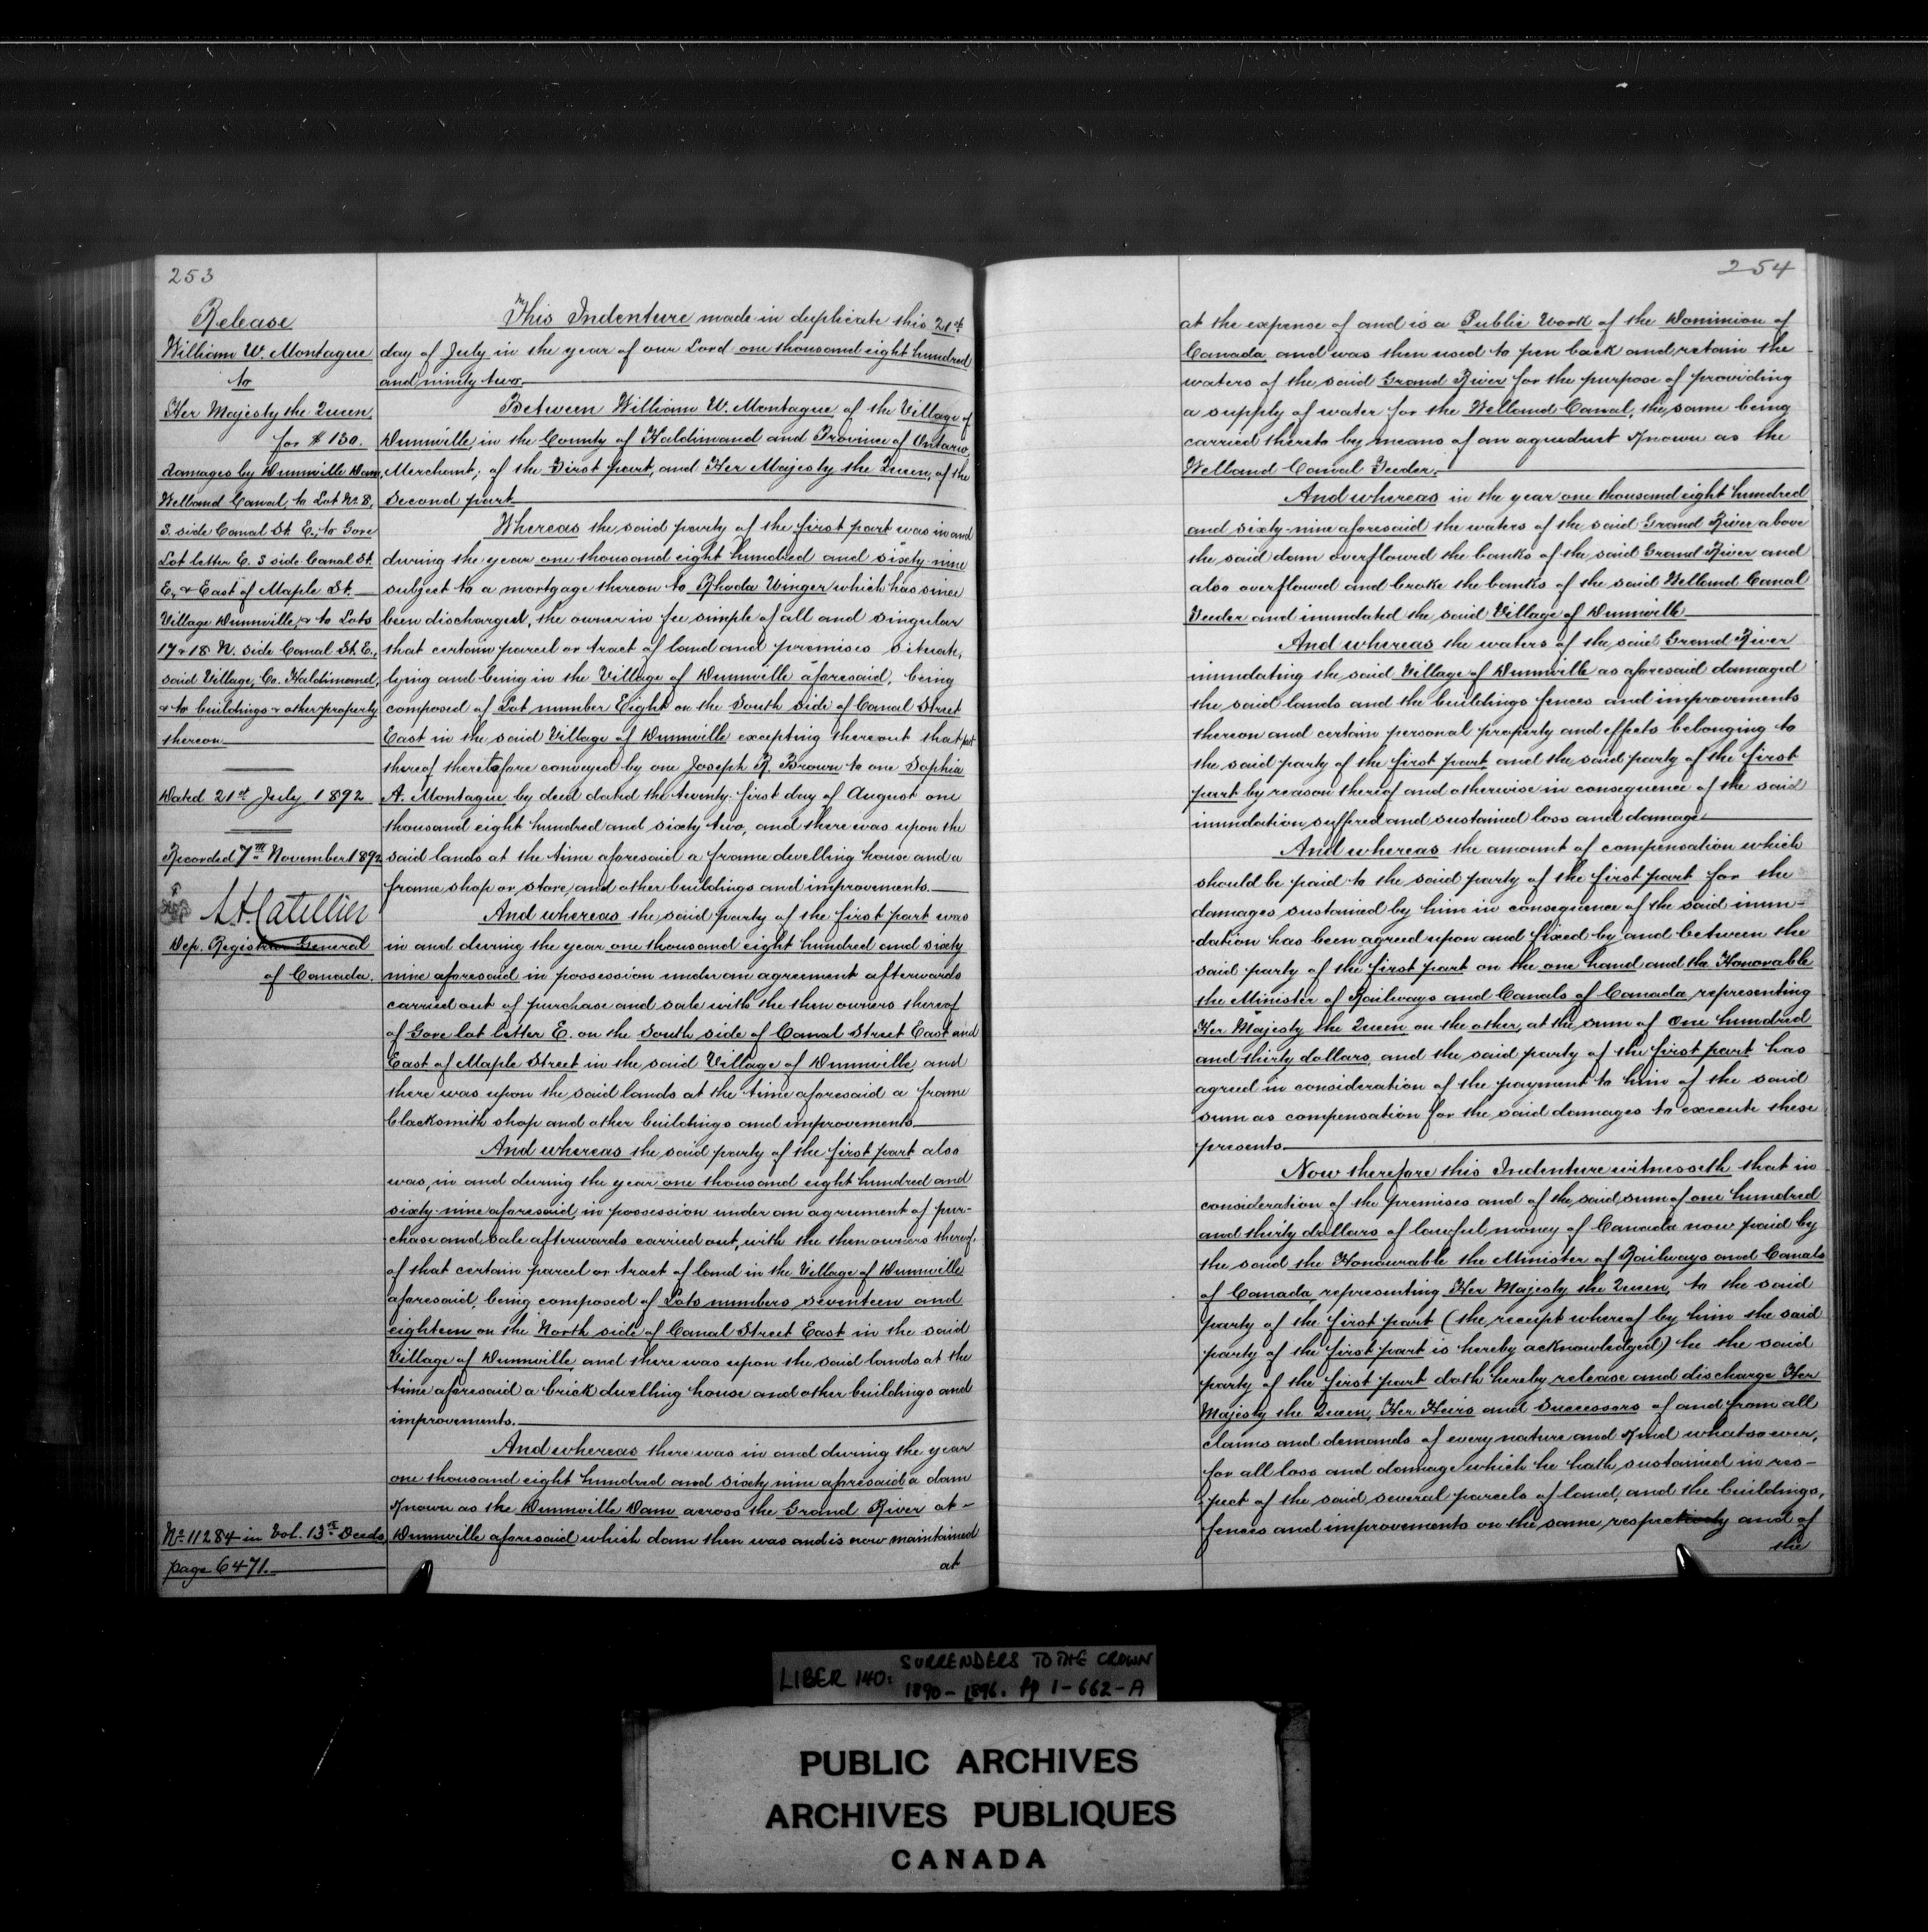 253
Release
William W. Montague
to
Her Majesty the Queen,
for $130.
damages by Dunnville Dam,
Welland Canal, to Lot No 8,
S. side Canal St. E., to Gore
Lot letter E. S side Canal St.
E, & East of Maple St.
Village Dunnville, & to Lots
17 & 18 N. side Canal St. E.,
said Village, Co. Haldimand,
& to buildings & other property
thereon
Dated 21st July 1892
Recorded 7th November 1892
Dep. Registrar General
of Canada.
No 11284 in Vol. 13th Deeds,
page 6471.
This Indenture made in duplicate this 21st
day of July in the year of our Lord one thousand eight hundred
and ninety two.
Between William W. Montague of the Village of
Dunnville, in the County of Haldimand and Province of Ontario,
Merchant, of the First part, and Her Majesty the Queen, of the
Second part
Whereas the said party of the first part was in and
during the year one thousand eight hundred and sixty-nine
subject to a mortgage thereon to Rhoda Winger which has since
been discharged, the owner in fee simple of all and singular
that certain parcel or tract of land and premises situate,
lying and being in the Village of Dunnville aforesaid, being
composed of Lot number Eight on the South Side of Canal Street
East in the said Village of Dunnville excepting thereout that part
thereof theretofore conveyed by one Joseph R. Brown to one Sophia
A. Montague by deed dated the twenty-first day of August one
thousand eight hundred and sixty two, and there was upon the
said lands at the time aforesaid a frame dwelling house and a
frame shop or store, and other buildings and improvements.
And whereas the said party of the first part was
in and during the year one thousand eight hundred and sixty
nine aforesaid in possession under an agreement afterwards
carried out of purchase and sale with the then owners thereof
of Gore lot letter E. on the South side of Canal Street East and
East of Maple Street in the said Village of Dunnville, and
there was upon the said lands at the time aforesaid a frame
blacksmith shop and other buildings and improvements.
And whereas the said party of the first part also
was, in and during the year one thousand eight hundred and
sixty-nine aforesaid, in possession under an agreement of pur-
chase and sale afterwards carried out, with the then owners thereof,
of that certain parcel or tract of land in the Village of Dunnville
aforesaid, being composed of Lots numbers seventeen and
eighteen on the North side of Canal Street East in the said
Village of Dunnville, and there was upon the said lands at the
time aforesaid a brick dwelling house and other buildings and
improvements.
And whereas there was in and during the year
one thousand eight hundred and sixty nine aforesaid a dam
known as the Dunnville Dam across the Grand River at-
Dunnville aforesaid which dam then was and is now maintained
at
254
at the expense of and is a Public Work of the Dominion of
Canada, and was then used to pen back and retain the
waters of the said Grand River for the purpose of providing
a supply of water for the Welland Canal, the same being
carried thereto by means of an aqueduct known as the
Welland Canal Feeder.
And whereas in the year one thousand eight hundred
and sixty-nine aforesaid the waters of the said Grand River above
the said dam overflowed the banks of the said Grand River and
also overflowed and broke the banks of the said Welland Canal
Feeder and inundated the said Village of Dunnville
And whereas the waters of the said Grand River
inundating the said Village of Dunnville as aforesaid damaged
the said lands and the buildings fences and improvements
thereon and certain personal property and effects belonging to
the said party of the first part, and the said party of the first
part by reason thereof and otherwise in consequence of the said
inundation suffered and sustained loss and damage.
And whereas the amount of compensation which
should be paid to the said party of the first part for the
damages sustained by him in consequence of the said inun-
dation has been agreed upon and fixed by and between the
said party of the first part on the one hand and the Honorable
the Minister of Railways and Canals of Canada, representing
Her Majesty the Queen, on the other, at the sum of One hundred
and thirty dollars, and the said party of the first part has
agreed in consideration of the payment to him of the said
sum as compensation for the said damages to execute these
presents
Now therefore this Indenture witnesseth that in
consideration of the premises and of the said sum of one hundred
and thirty dollars of lawful money of Canada now paid by
the said the Honourable the Minister of Railways and Canals
of Canada, representing Her Majesty the Queen, to the said
party of the first part (the receipt whereof by him the said
party of the first part is hereby acknowledged) he the said
party of the first part doth hereby release and discharge Her
Majesty the Queen, Her Heirs and Successors of and from all
claims and demands of every nature and kind whatsoever,
for all loss and damage which he hath sustained in res-
pect of the said several parcels of land, and the buildings,
fences and improvements on the same respectively and of
the
LIBER 140: SURRENDERS TO THE CROWN
1890-1896. pp 1-662-A
PUBLIC ARCHIVES
ARCHIVES PUBLIQUES
CANADA